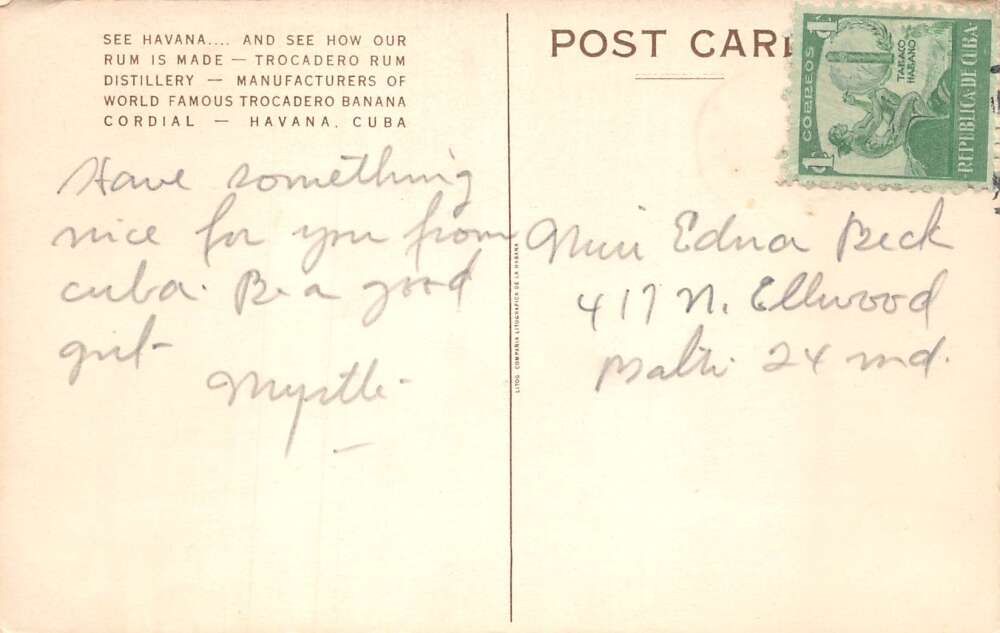 SEE HAVANA.... AND SEE HOW OUR
RUM IS MADE — TROCADERO RUM
DISTILLERY — MANUFACTURERS OF
WORLD FAMOUS TROCADERO BANANA
CORDIAL — HAVANA, CUBA
Have something
nice for you from
cuba. Be a good
girl-
Myrtle-
LITOG. COMPAÑIA LITOGRAFICA DE LA HABANA
POST CAR
1 CORREOS 1
TABACO
HABANO
REPUBLICA DE CUBA
Miss Edna Beck
417 N. Ellwood
Balti 24 md.